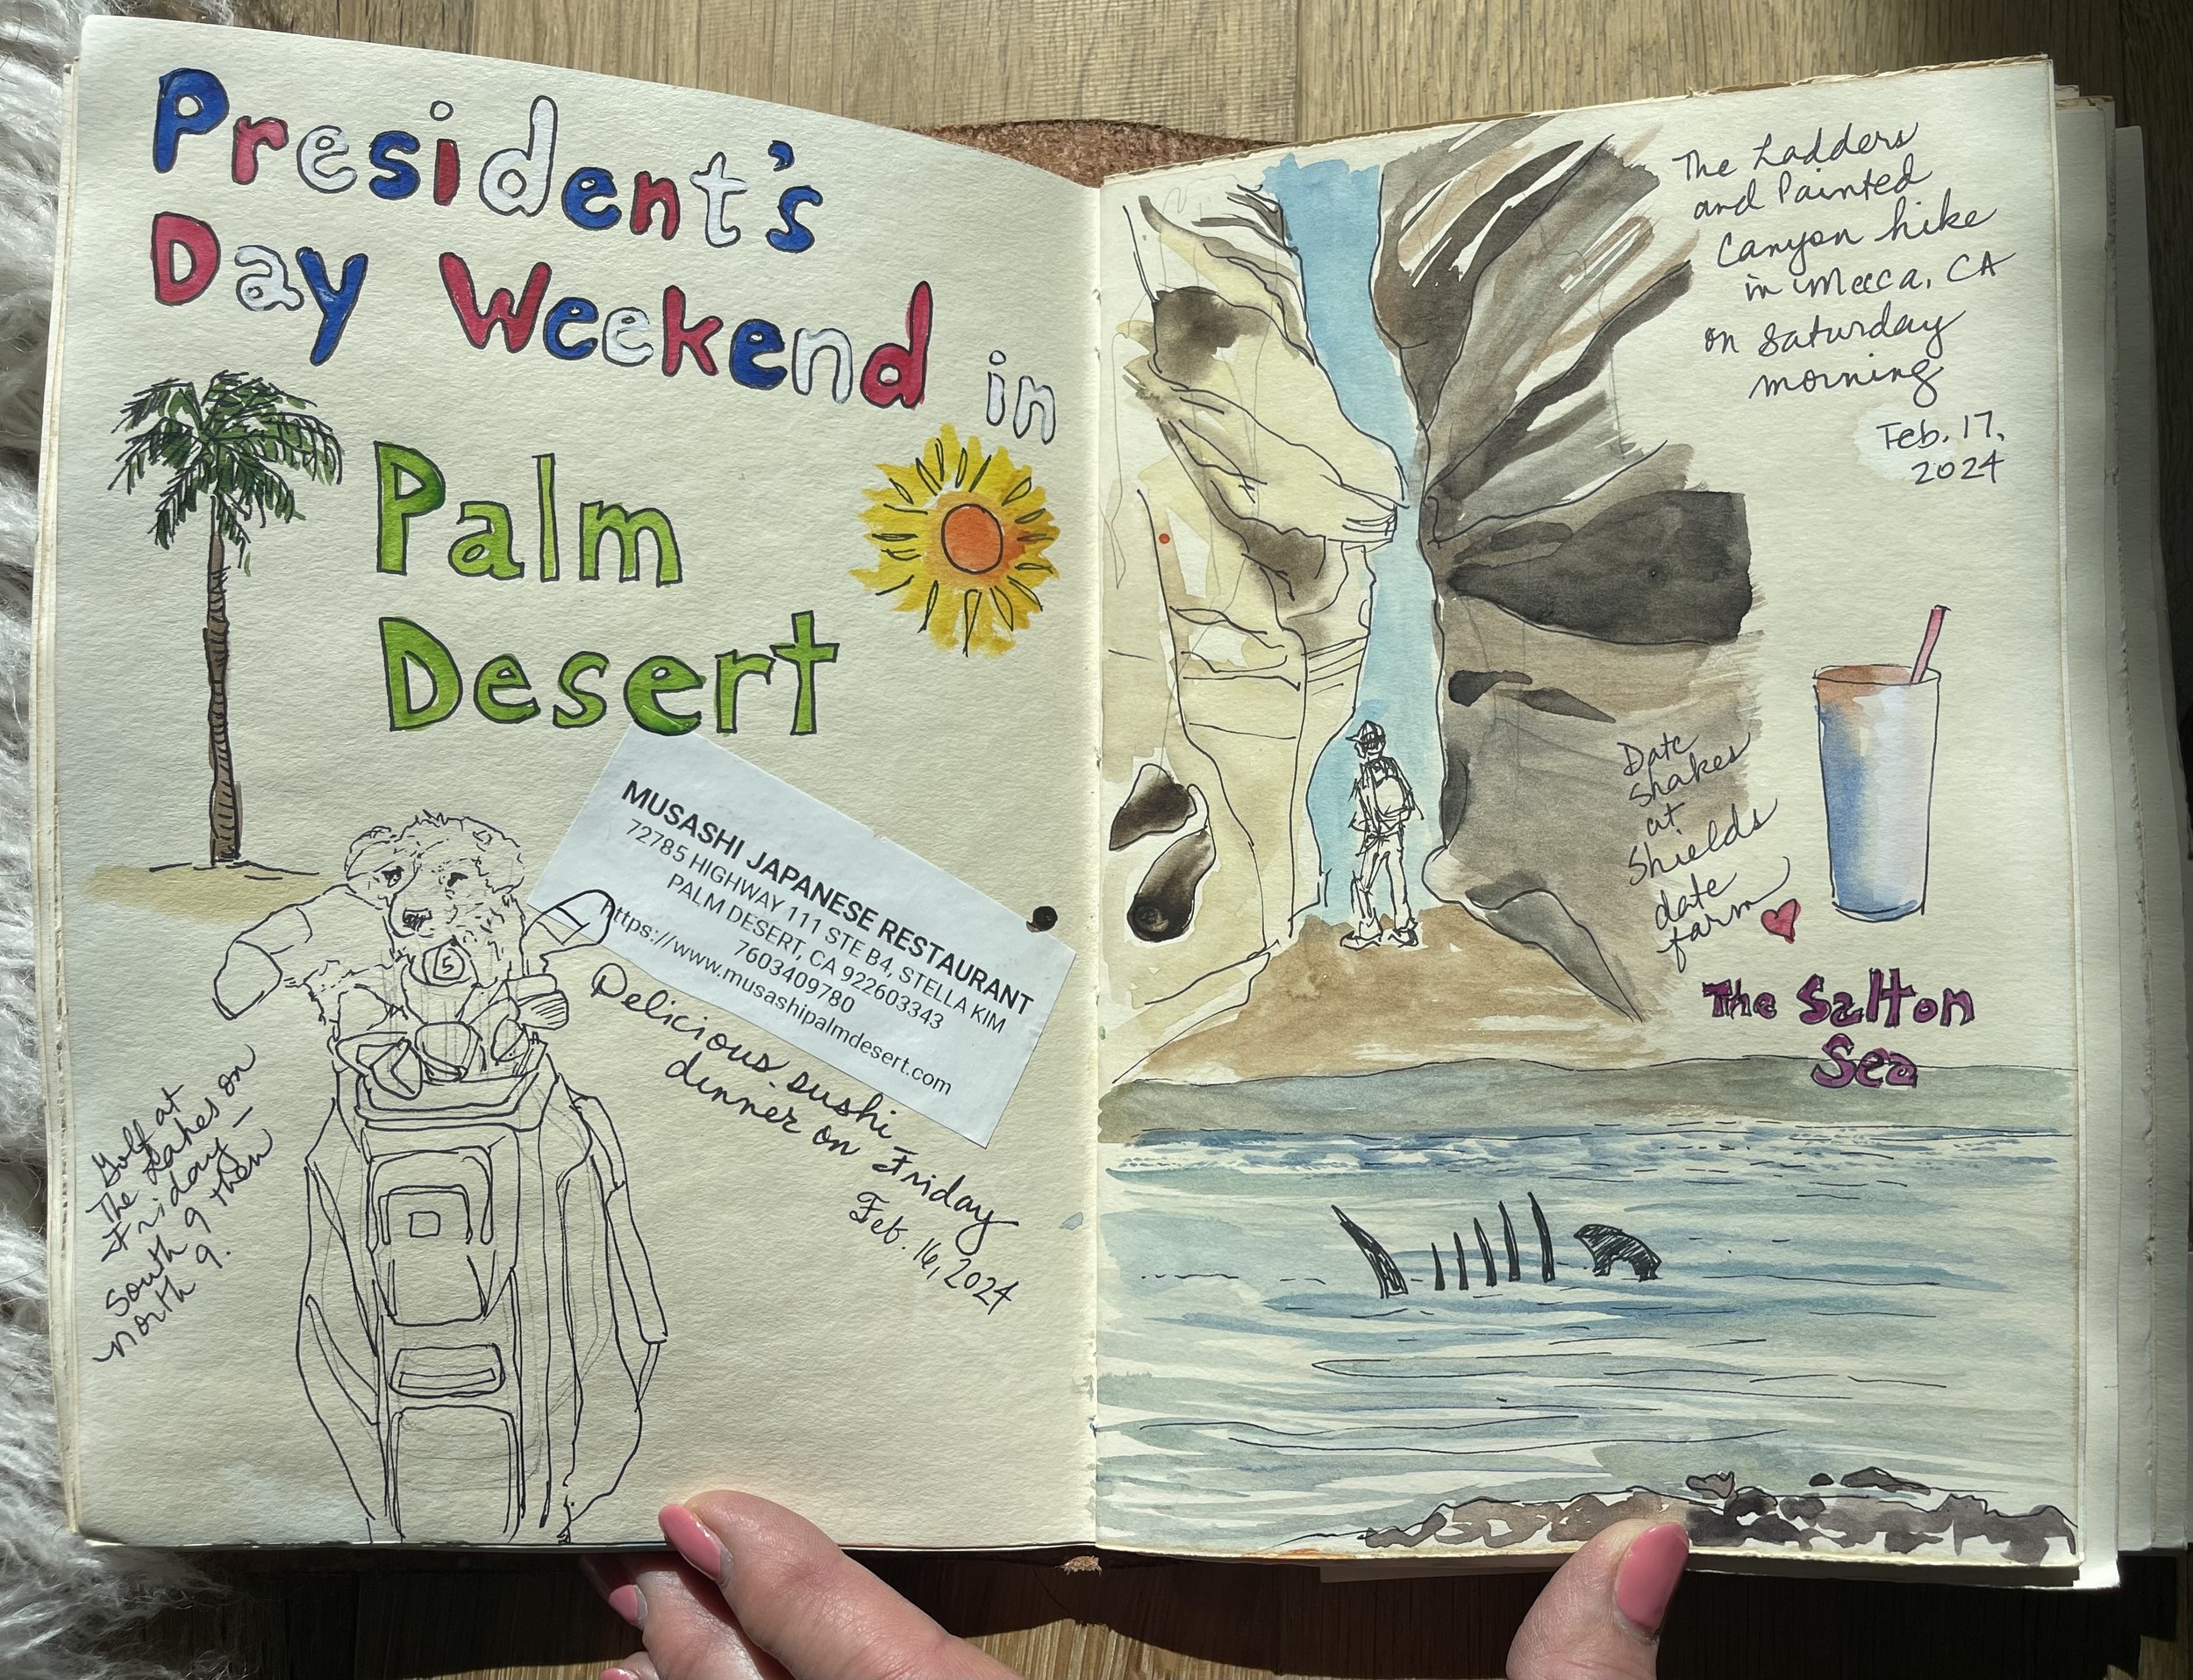 President's
Day Weekend in
Palm
Desert
MUSASHI JAPANESE RESTAURANT
72785 HIGHWAY 111 STE B4, STELLA KIM
PALM DESERT, CA 9226033343
7603409780
https://www.musashipalmdesert.com
Delicious sushi
dinner on Friday
Feb. 16, 2024
5
Golf at
The Lakes on
Friday –
South 9 then
north 9.
The Ladders
and Painted
Canyon hike
in Mecca, CA
on Saturday
morning
Feb. 17,
2024
Date
shakes
at
Shields
date
farm
The Salton
Sea